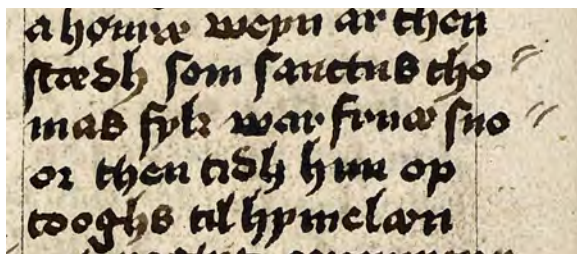 a høuræ weyn ar then
stædh som sanctus tho
mas fyk war fruæ sno
or then tidh hun op
tooghs til hymelæn